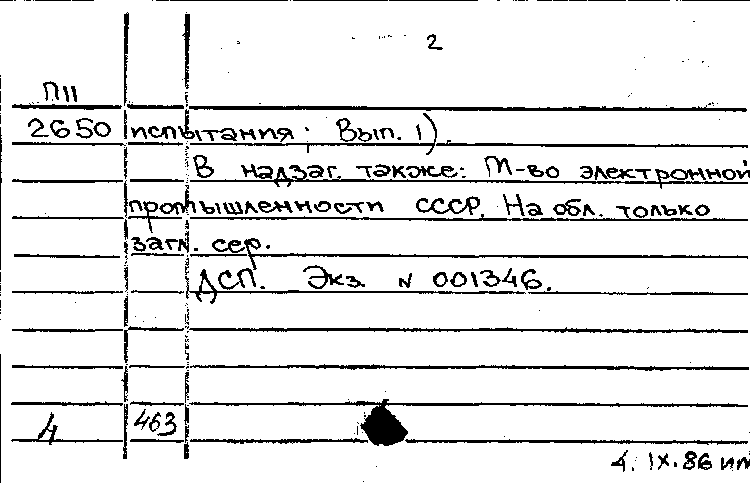 2
П11
2650 испытания; Вып. 1).
В надзаг. также: М-во электронной
промышленности СССР. На обл. только
загл. сер.
ДСП. Экз. N 001346.
4 463
4. IX. 86